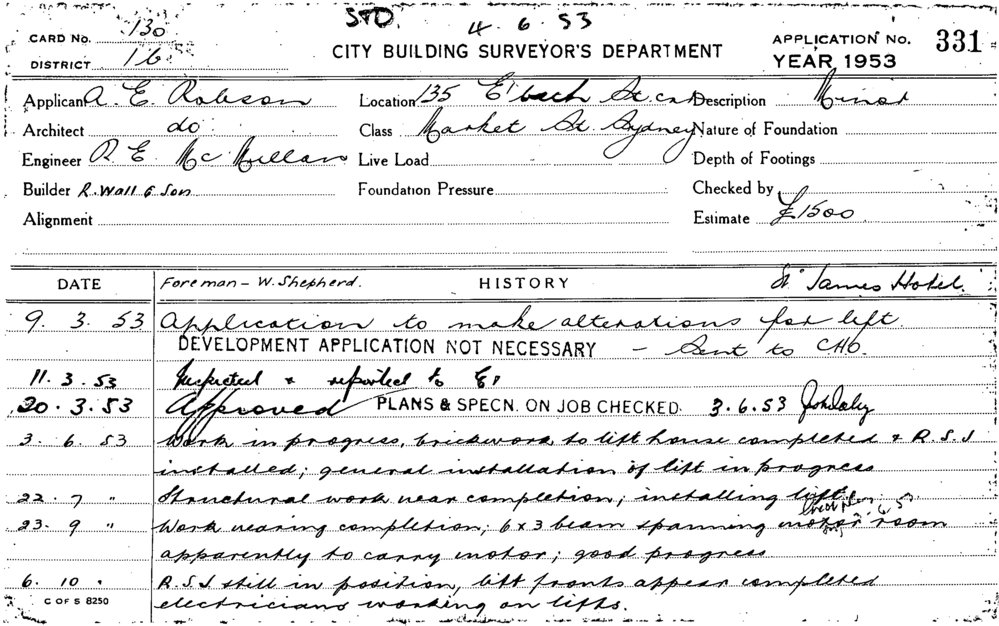 STD. 4. 6. 53
CARD No. 130
CITY BUILDING SURVEYOR'S DEPARTMENT
APPLICATION No. 331
DISTRICT 16
YEAR 1953
Applicant A. E. Robson Location 135 E'beth St. cnr Description Minor
Architect do Class Market St. Sydney Nature of Foundation
Engineer R. E. McMillan Live Load Depth of Footings
Builder R. Wall & Son Foundation Pressure Checked by
Alignment Estimate £1500
DATE Foreman - W. Shepherd. HISTORY St James Hotel.
9. 3. 53 Application to make alterations for lift.
DEVELOPMENT APPLICATION NOT NECESSARY - Sent to CHO.
11. 3. 53 Inspected & reported to
20. 3. 53 Approved PLANS & SPECN. ON JOB CHECKED. 3.6.53
3. 6. 53 Work in progress, brickwork to lift house completed & R.S.J
installed; general installation of lift in progress
22. 7 " Structural work near completion; installing lift.
23. 9 " Work nearing completion; 6x3 beam spanning motor room
apparently to carry motor; good progress
6. 10 " R.S.J still in position, lift fronts appear completed
C OF S 8250 electricians working on lifts.